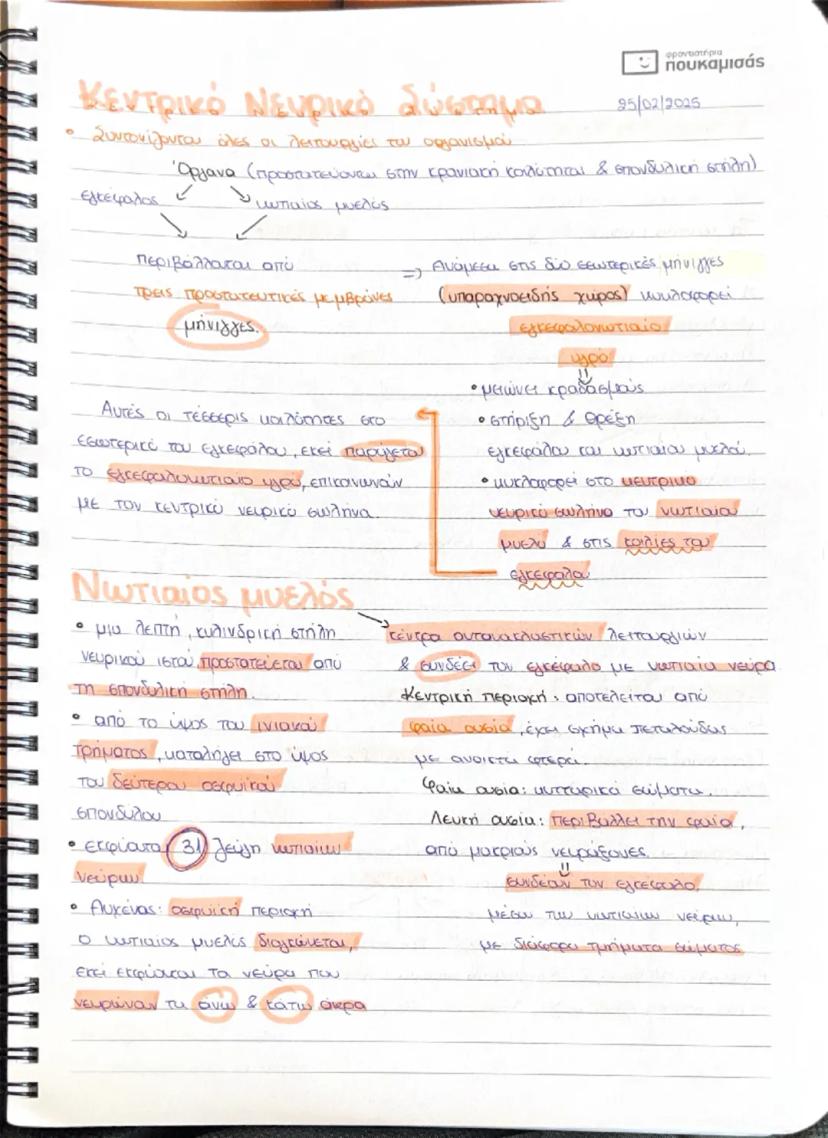 φροντιστήρια
πουκαμισάς
Κεντρικό Νευρικό Σύστημα
25/02/2025
• Συντονίζονται όλες οι λειτουργίες του οργανισμού
Όργανα (προστατεύονται στην κρανιακή κοιλότητα & σπονδυλική στήλη)
εγκέφαλος νωτιαίος μυελός
Περιβάλλεται από
τρεις προστατευτικές μεμβράνες
μήνιγγες.
=> Ανάμεσα στις δύο εσωτερικές μήνιγγες
(υπαραχνοειδής χώρος) κυκλοφορεί
εγκεφαλονωτιαίο
υγρό
• μειώνει κραδασμούς
• στήριξη & θρέξη
εγκεφάλου και νωτιαίου μυελού.
• κυκλοφορεί στο κεντρικό
νευρικό σωλήνα του νωτιαίου
μυελό & στις κοιλίες του
εγκεφάλου
Αυτές οι τέσσερις κοιλότητες στο
εσωτερικό του εγκεφάλου, εκεί παράγεται
το εγκεφαλονωτιαίο υγρό, επικοινωνούν
με τον κεντρικό νευρικό σωλήνα.
Νωτιαίος μυελός
• μια λεπτή, κυλινδρική στήλη
νευρικού ιστού, προστατεύεται από
τη σπονδυλική στήλη.
• από το ύψος του ινιακού
τρήματος, καταλήγει στο ύψος
του δεύτερου οσφυϊκού
σπονδύλου
• εκφύονται 31 ζεύγη νωτιαίων
νεύρων
• Αυχένας: οσφυϊκή περιοχή
ο νωτιαίος μυελός διογκώνεται,
εκεί εκφύονται τα νεύρα που
νευρώνουν τα άνω & κάτω άκρα
κέντρα αντανακλαστικών λειτουργιών
& συνδέει τον εγκέφαλο με νωτιαία νεύρα
Κεντρική περιοχή: αποτελείται από
φαία ουσία, έχει σχήμα πεταλούδας
με ανοικτά φτερά.
Φαία ουσία: κυτταρικά σώματα.
Λευκή ουσία: περιβάλλει την φαία,
από μακριούς νευράξονες.
συνδέουν τον εγκέφαλο,
μέσω των νωτιαίων νεύρων,
με διάφορα τμήματα σώματος